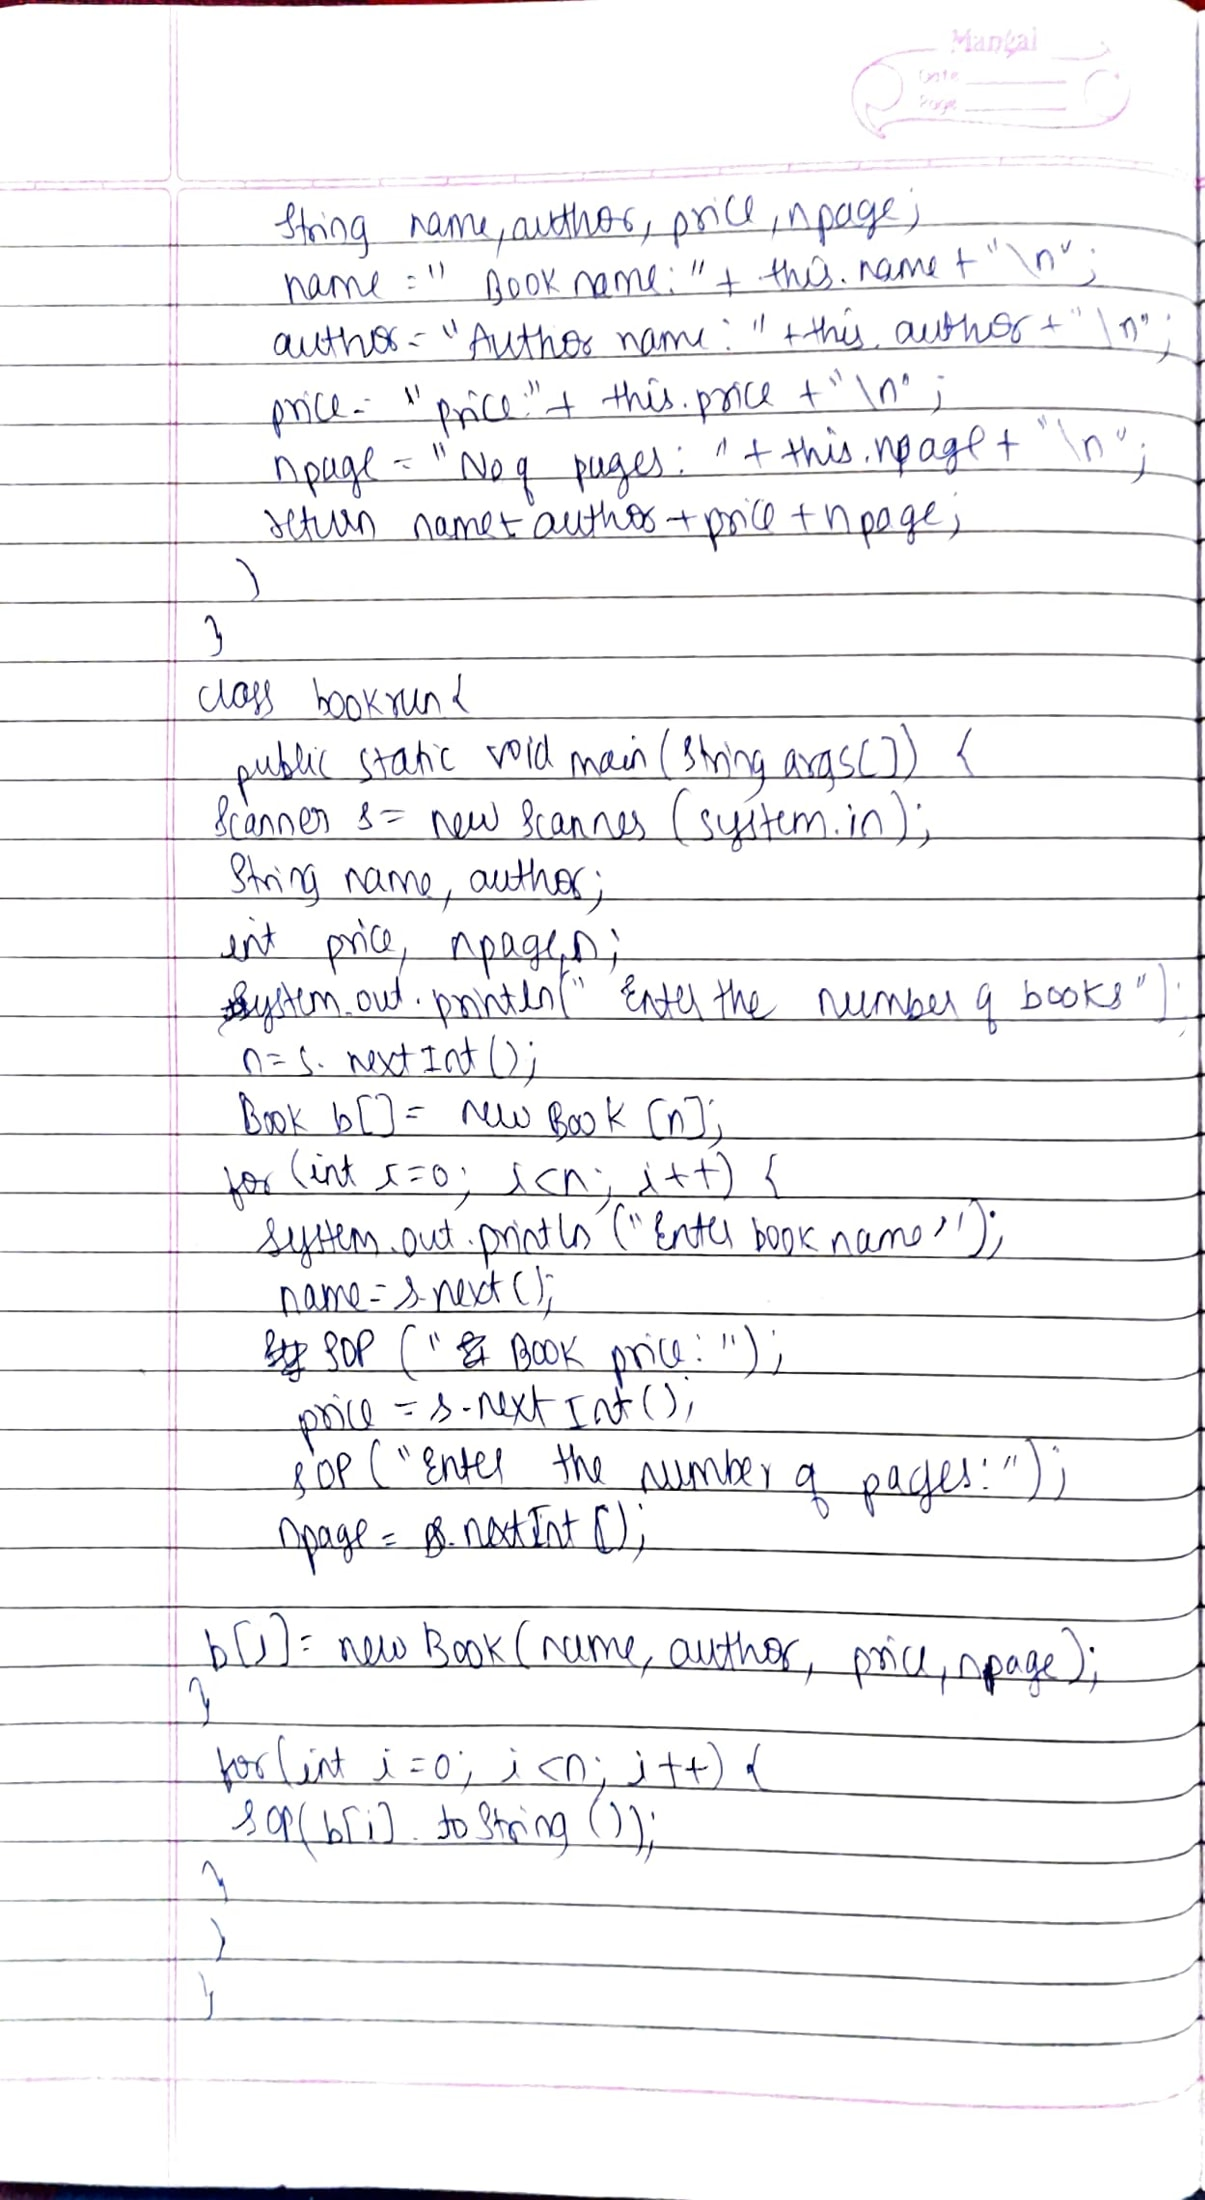 Mangai
Date
Page
String name, author, price, npage;
name = " Book name: " + this.name + "\n";
author = "Author name: " + this.author + "\n";
price = "price:" + this.price + "\n";
npage = "No of pages: " + this.npage + "\n";
return name + author + price + npage;
}
}
class bookrun {
public static void main (String args[]) {
Scanner s = new Scanner (system.in);
String name, author;
int price, npage, n;
System.out.println(" Enter the number of books");
n = s.nextInt();
Book b[] = new Book [n];
for (int i=0; i<n; i++) {
System.out.println ("Enter book name");
name = s.next();
SOP (" Book price: ");
price = s.nextInt();
SOP ("Enter the number of pages: ");
npage = s.nextInt();
b[i] = new Book (name, author, price, npage);
}
for (int i=0; i<n; i++) {
SOP(b[i].toString());
}
}
}